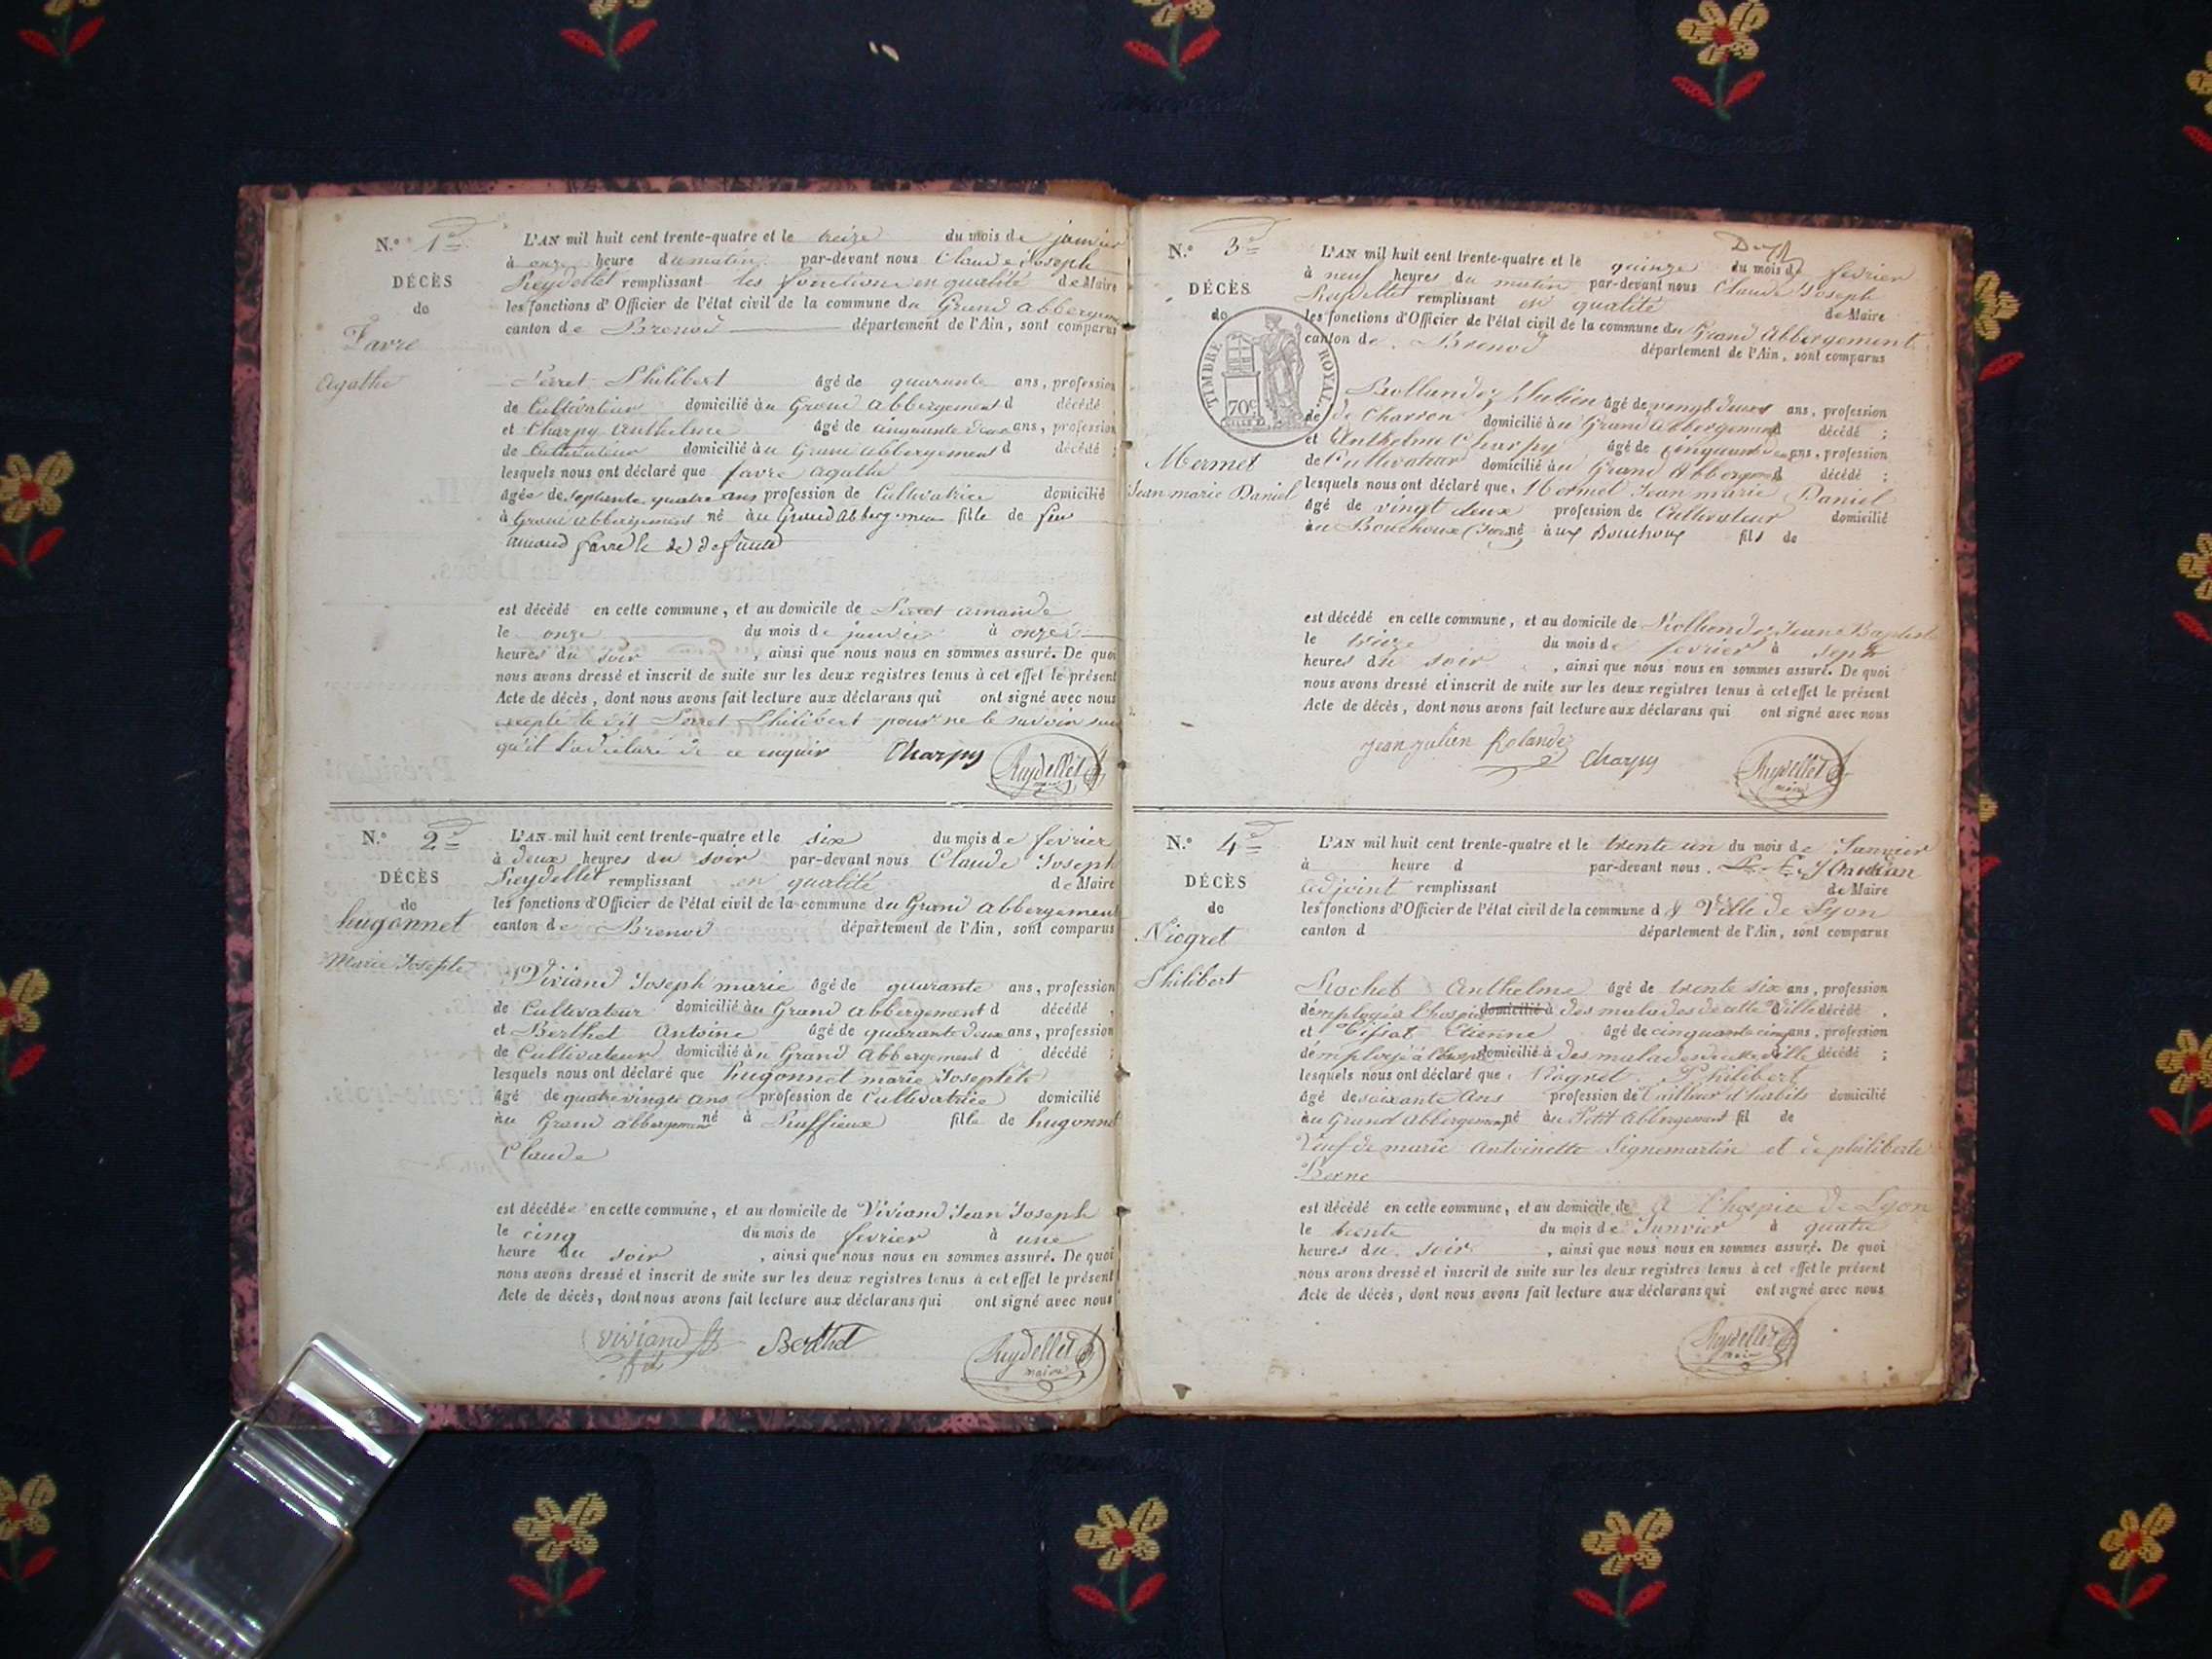 N.° 1er
DÉCÈS
de
Favre
Agathe
L'AN mil huit cent trente-quatre et le treize du mois de janvier
à onze heure du matin par-devant nous Claude Joseph
Reydellet remplissant les fonction en qualité de Maire
les fonctions d'Officier de l'état civil de la commune du Grand Abbergement
canton de Brenod département de l'Ain, sont comparus
Perret Philibert âgé de quarante ans, profession
de Cultivateur domicilié au Grand Abbergement d décédé
et Charpy Anthelme âgé de cinquante deux ans, profession
de Cultivateur domicilié au Grand Abbergement d décédé ;
lesquels nous ont déclaré que favre agathe
âgée de septante quatre ans profession de Cultivatrice domicilié
à Grand abbergement né au Grand Abbergement fille de feu
est décédé en cette commune, et au domicile de Perret amande
le onze du mois de janvier à onze
heures du soir , ainsi que nous nous en sommes assuré. De quoi
nous avons dressé et inscrit de suite sur les deux registres tenus à cet effet le présent
Acte de décès, dont nous avons fait lecture aux déclarans qui ont signé avec nous
excepté le dit Perret Philibert pour ne le savoir
qu'il l'a déclaré de ce enquir Charpy Reydellet
maire
N.° 2e
DÉCÈS
de
hugonnet
Marie Josephte
L'AN mil huit cent trente-quatre et le six du mois de fevrier
à deux heures du soir par-devant nous Claude Joseph
Reydellet remplissant en qualité de Maire
les fonctions d'Officier de l'état civil de la commune du Grand Abbergement
canton de Brenod département de l'Ain, sont comparus
Viviand Joseph marie âgé de quarante ans, profession
de Cultivateur domicilié au Grand Abbergement d décédé ,
et Berthet Antoine âgé de quarante deux ans, profession
de Cultivateur domicilié au Grand Abbergement d décédé ;
lesquels nous ont déclaré que hugonnet marie Josephte
âgé de quatre vingts ans profession de Cultivatrice domicilié
au Grand abbergement né à Ruffieux fille de hugonnet
Claude
est décédée en cette commune, et au domicile de Viviand Jean Joseph
le cinq du mois de fevrier à une
heure du soir , ainsi que nous nous en sommes assuré. De quoi
nous avons dressé et inscrit de suite sur les deux registres tenus à cet effet le présent
Acte de décès, dont nous avons fait lecture aux déclarans qui ont signé avec nous
viviand Berthet Reydellet
maire
N.° 3e
DÉCÈS
de
TIMBRE ROYAL
70c
Mermet
Jean marie Daniel
L'AN mil huit cent trente-quatre et le quinze du mois de fevrier
à neuf heures du matin par-devant nous Claude Joseph
Reydellet remplissant en qualité de Maire
les fonctions d'Officier de l'état civil de la commune du Grand Abbergement
canton de Brenod département de l'Ain, sont comparus
Rollandez Julien âgé de vingt deux ans, profession
de de Charron domicilié au Grand Abbergement décédé ;
et Anthelme Charpy âgé de cinquante ans, profession
de Cultivateur domicilié au Grand Abbergement décédé ;
lesquels nous ont déclaré que Mermet Jean marie Daniel
âgé de vingt deux profession de Cultivateur domicilié
au Bouchoux né aux Bouchoux fils de
est décédé en cette commune, et au domicile de Rollandez Jean Baptiste
le treize du mois de fevrier à sept
heures du soir , ainsi que nous nous en sommes assuré. De quoi
nous avons dressé et inscrit de suite sur les deux registres tenus à cet effet le présent
Acte de décès, dont nous avons fait lecture aux déclarans qui ont signé avec nous
jean julien Rolandez Charpy Reydellet
maire
N.° 4e
DÉCÈS
de
Niogret
Philibert
L'AN mil huit cent trente-quatre et le trente un du mois de Janvier
à heure d par-devant nous
adjoint remplissant de Maire
les fonctions d'Officier de l'état civil de la commune d Ville de Lyon
canton d département de l'Ain, sont comparus
Rochet Anthelme âgé de trente six ans, profession
d'employé à l'hospice domicilié à des malades de cette Ville décédé ,
et Tissot Etienne âgé de cinquante cinq ans, profession
d'employé à domicilié à des malades de cette Ville décédé ;
lesquels nous ont déclaré que Niogret Philibert
âgé de soixante Ans profession de Tailleur d'habits domicilié
au Grand Abbergement né au Petit Abbergement fil de
Veuf de marie Antoinette Signemartin et de philiberte
Berne
est décédé en cette commune, et au domicile de à l'hospice de Lyon
le trente du mois de Janvier à quatre
heures du soir , ainsi que nous nous en sommes assuré. De quoi
nous avons dressé et inscrit de suite sur les deux registres tenus à cet effet le présent
Acte de décès, dont nous avons fait lecture aux déclarans qui ont signé avec nous
Reydellet
maire